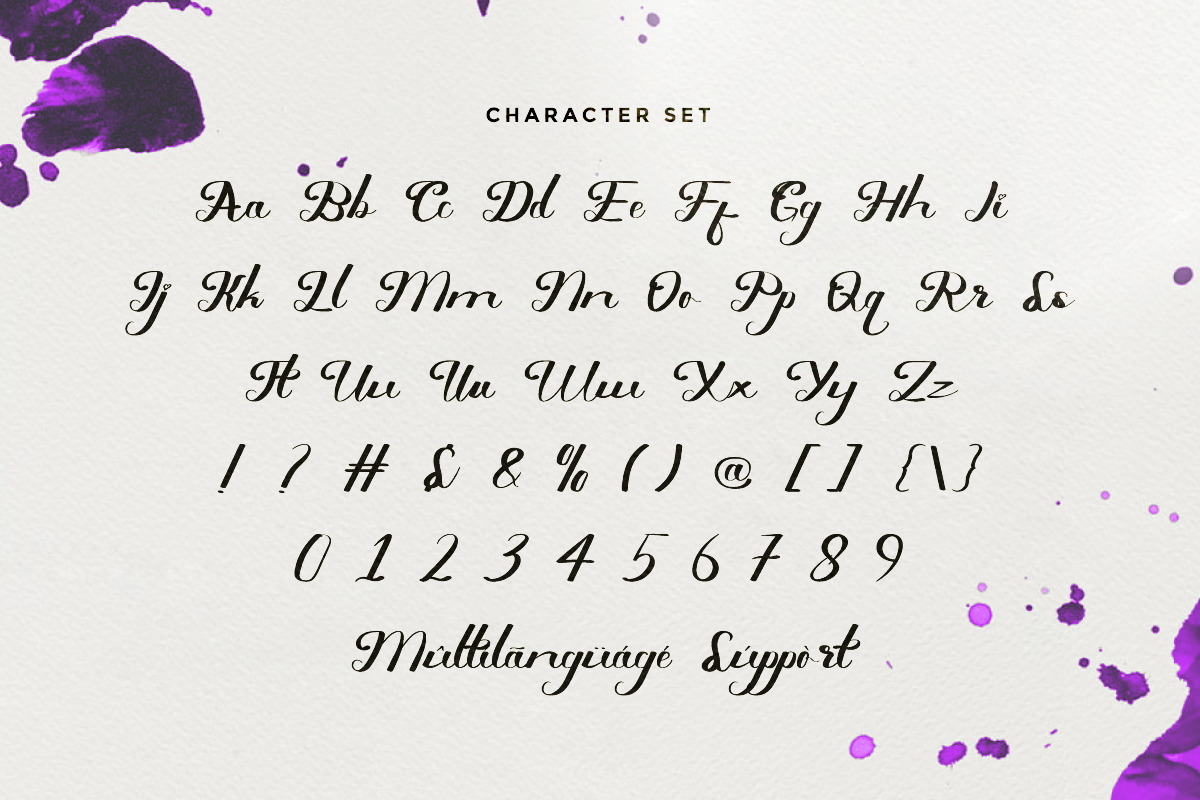 CHARACTER SET
Aa Bb Cc Dd Ee Ff Gg Hh Ii
Jj Kk Ll Mm Nn Oo Pp Qq Rr Ss
Tt Uu Vv Ww Xx Yy Zz
! ? # $ & % ( ) @ [ ] { \ }
0 1 2 3 4 5 6 7 8 9
Mûltilãngüágé Súppòrt